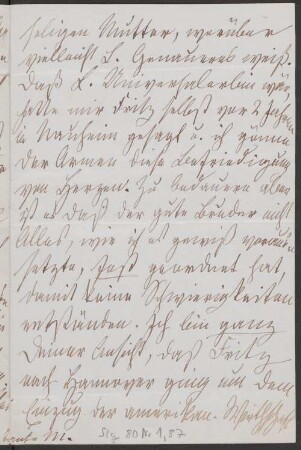 seligen Mutter, worüber
vielleicht L. Genaueres weiß.
Daß L. Universalerbin war,
hatte mir Fritz selbst vor 2 Jahren
in Nauheim gesagt u. ich gönne
der Armen diese Befriedigung
von Herzen. Zu bedauern aber
ist es daß der gute Bruder nicht
Alles, wie ich es gewiß voraus
setzte, fest geordnet hat,
damit keine Schwierigkeiten
entständen. Ich bin ganz
Deiner Ansicht, daß Fritz
nach Hannover ging um dem
Einzug der amerikan.
Slg 80 Nr 1,87